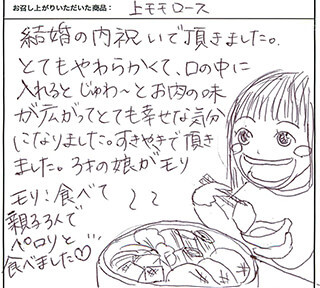 お召し上がりいただいた商品： 上モモロース
結婚の内祝いで頂きました。
とてもやわらかくて、口の中に
入れるとじゅわ〜とお肉の味
が広がってとても幸せな気分
になりました。すきやきで頂き
ました。3才の娘がモリ
モリ食べて
親子3人で
ペロリと
食べました♡